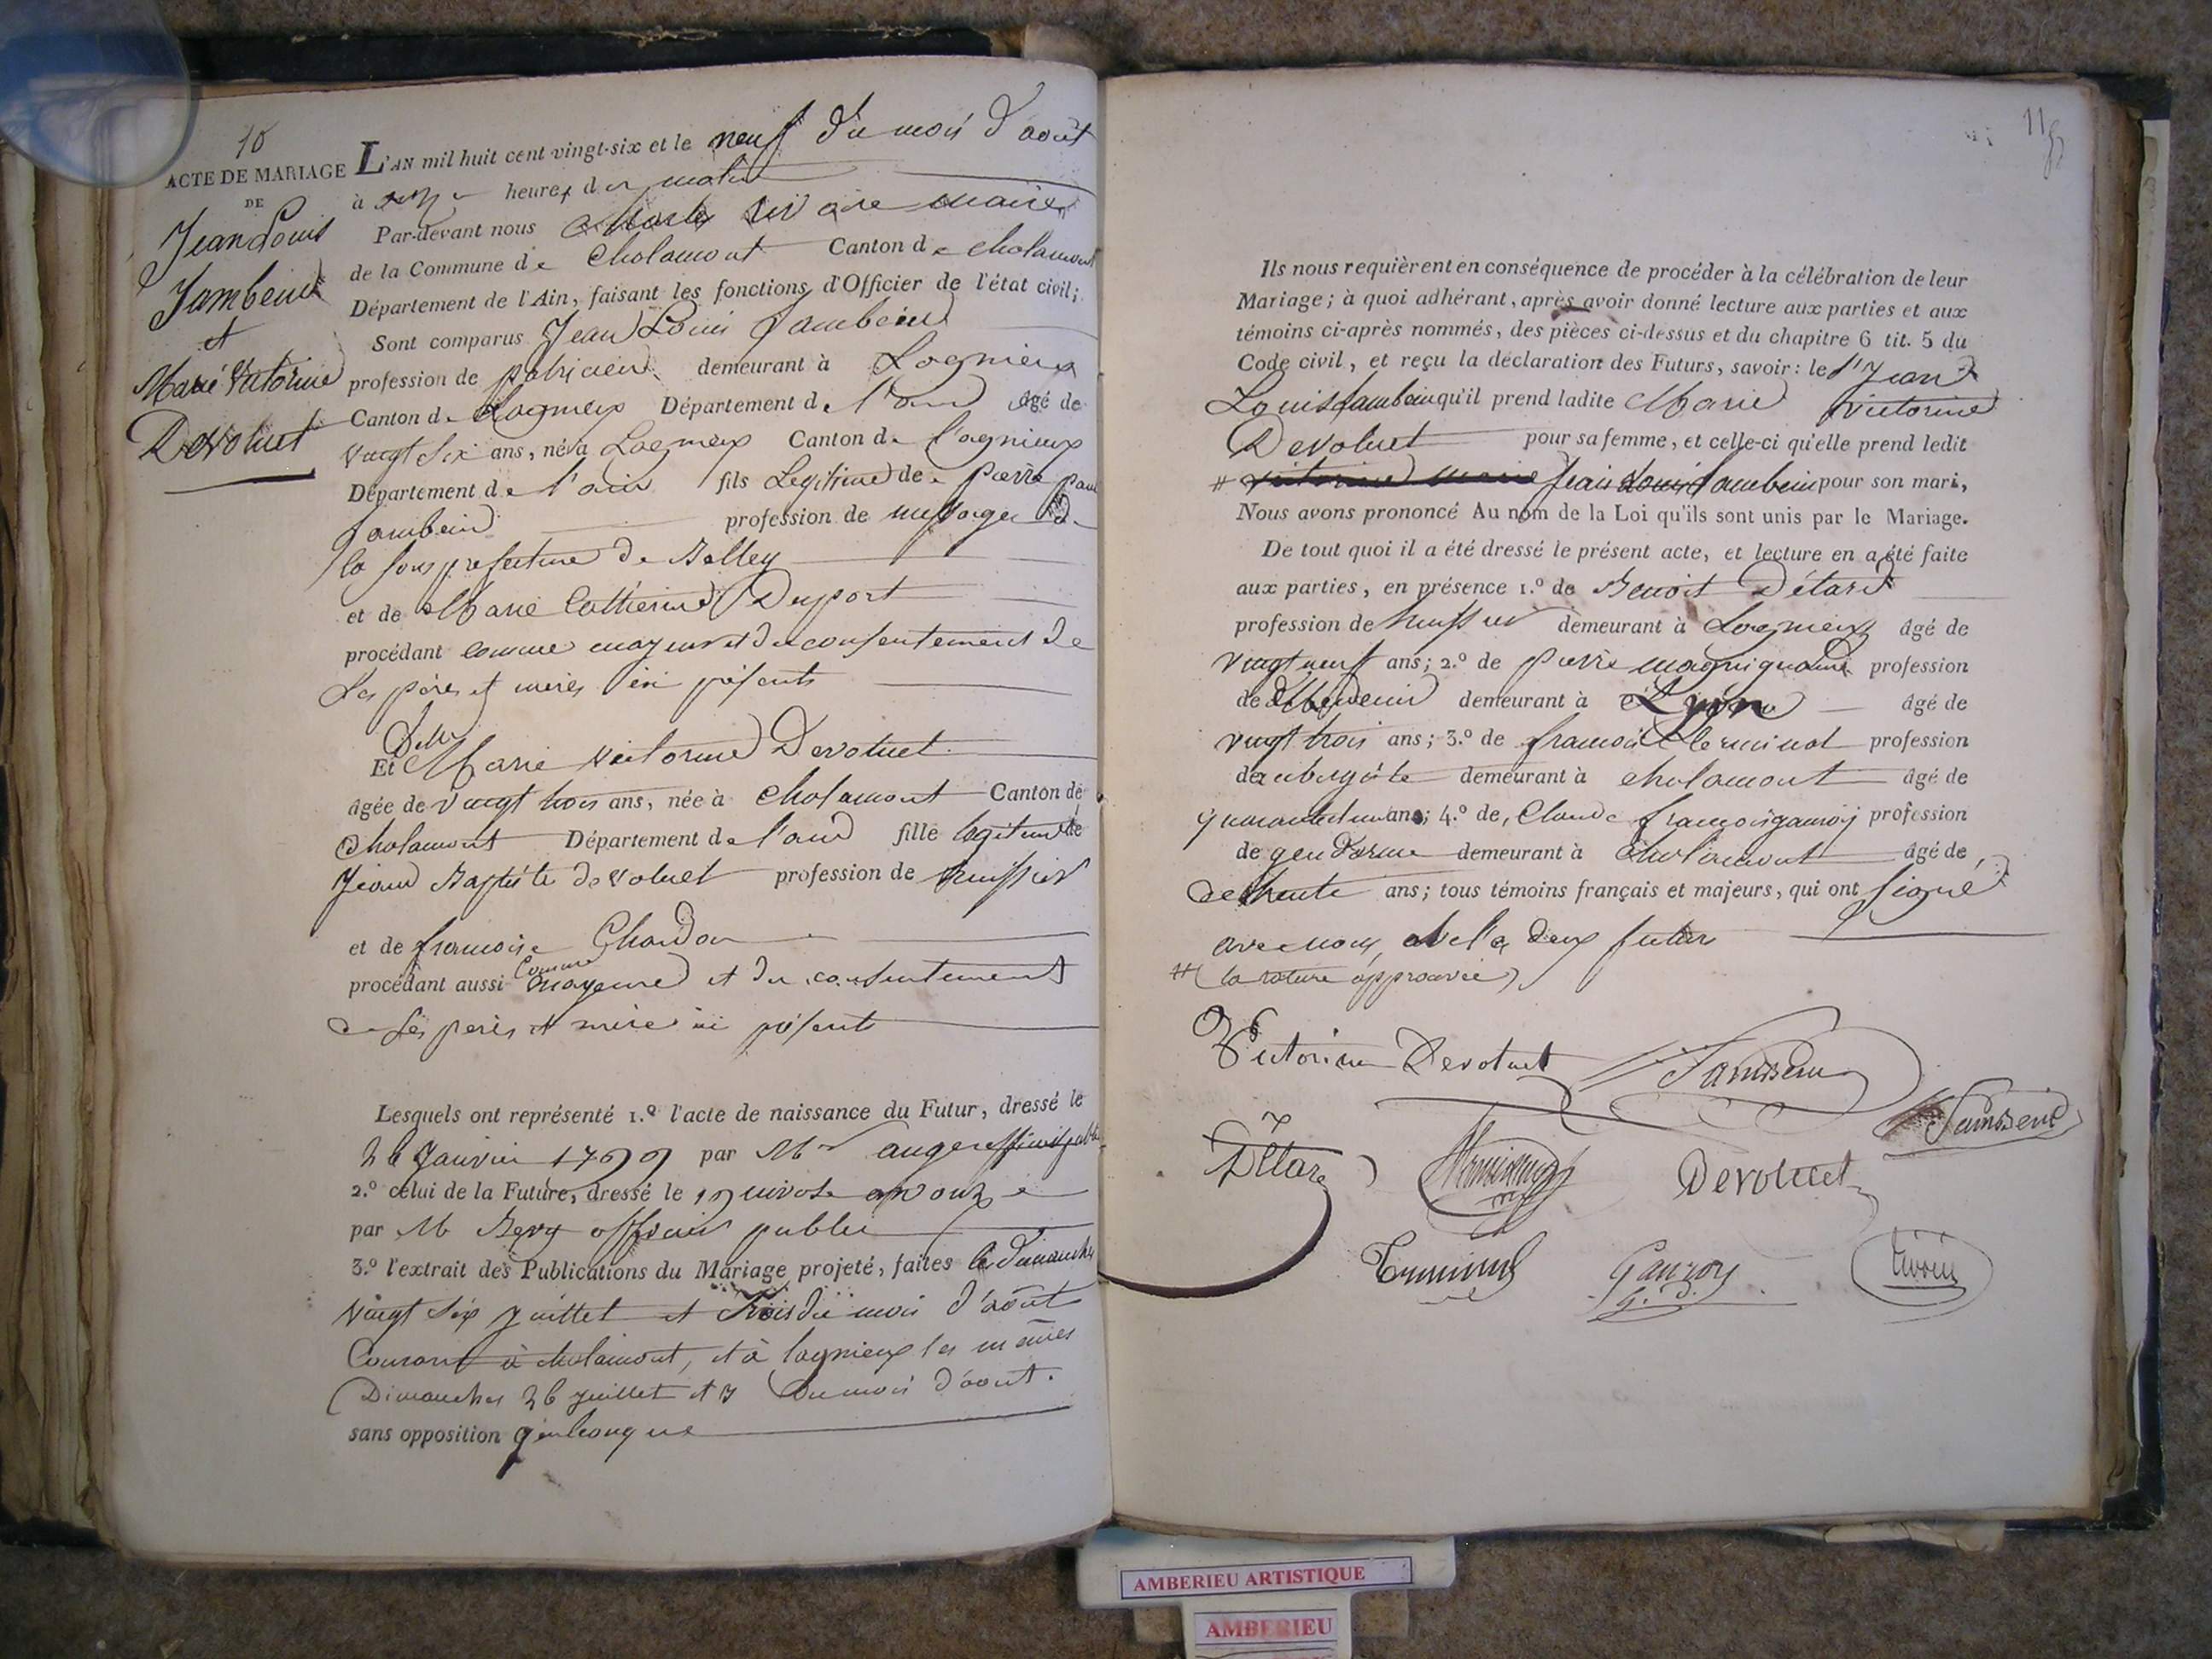 10
ACTE DE MARIAGE
DE
Jean Louis
Jambein
et
Marie Victorine
Devoluet
L'AN mil huit cent vingt-six et le neuf du mois d'août
à onze heures du matin
Par-devant nous Charles rivoire maire
de la Commune de Chalamont Canton de chalamont
Département de l'Ain, faisant les fonctions d'Officier de l'état civil;
Sont comparus Jean Louis Jambein
profession de praticien demeurant à Lagnieux
Canton de Lagnieux Département de l'ain âgé de
vingt six ans, né à Lagnieux Canton de Lagnieux
Département de l'ain fils Legitime de Pierre paul
Jambein profession de messager de
la sous prefecture de Belley
et de Marie Catherine Duport
procédant comme majeur et du consentement de
Ses père et mère ici présents
Et Delle Marie victorine Devoluet
âgée de vingt trois ans, née à Chalamont Canton de
Chalamont Département de l'ain fille legitime de
Jean Baptiste devoluet profession de huissier
et de francoise Chardon
procédant aussi Comme majeure et du consentement
de Ses pere et mère ici présent
Lesquels ont représenté 1.º l'acte de naissance du Futur, dressé le
26 Janvier 1799 par Mr auger officier public
2.º celui de la Future, dressé le 19 nivose an onze
par M officier public
3.º l'extrait des Publications du Mariage projeté, faites les Dimanches
vingt six juillet et trois du mois d'août
Courant à chalamont, et à lagnieux les mêmes
Dimanches 26 juillet et 3 du mois d'août.
sans opposition quelconque
11
Ils nous requièrent en conséquence de procéder à la célébration de leur
Mariage; à quoi adhérant, après avoir donné lecture aux parties et aux
témoins ci-après nommés, des pièces ci-dessus et du chapitre 6 tit. 5 du
Code civil, et reçu la déclaration des Futurs, savoir: le Sr Jean
Louis Jambein qu'il prend ladite Marie victorine
Devoluet pour sa femme, et celle-ci qu'elle prend ledit
# victorine marie Jean Louis Jambein pour son mari,
Nous avons prononcé Au nom de la Loi qu'ils sont unis par le Mariage.
De tout quoi il a été dressé le présent acte, et lecture en a été faite
aux parties, en présence 1.º de Benoit Détard
profession de huissier demeurant à Lagnieux âgé de
vingt neuf ans; 2.º de pierre profession
de demeurant à Lyon âgé de
vingt trois ans; 3.º de francois profession
de aubergiste demeurant à chalamont âgé de
quarante un ans; 4.º de, Claude francois ganroy profession
de gendarme demeurant à Chalamont âgé de
de trente ans; tous témoins français et majeurs, qui ont signé
avec nous, et les deux futur
#( la rature approuvée)
Victorine Devoluet Jambein
Jambein
Détard Devoluet
Ganroy
g. d.
rivoire
AMBERIEU ARTISTIQUE
AMBERIEU